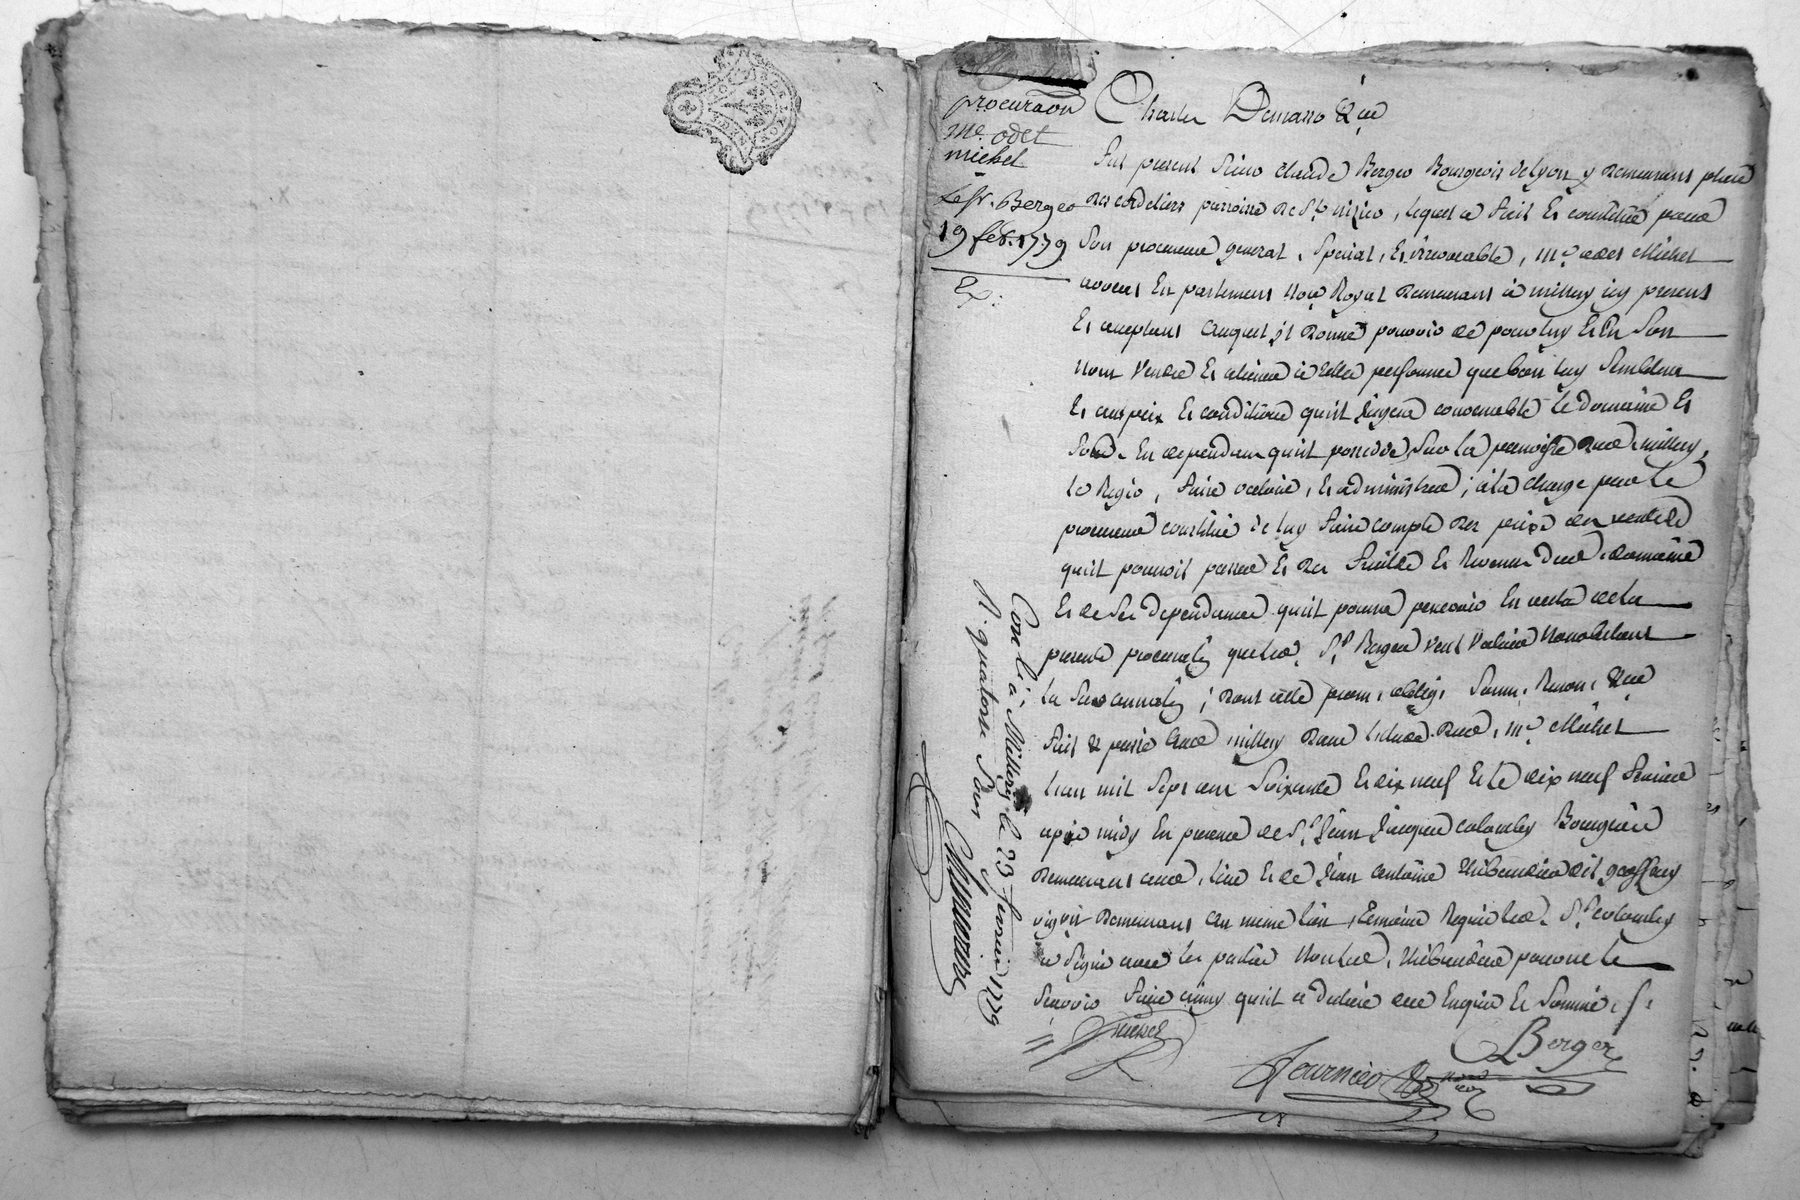 procuraõn
Me. odet
michel
Le Sr. Berger
19 fév. 1779
Ex:
fut present Sieur Claude Berger Bourgeois de Lyon y demeurant place
des cordeliers parroisse de St. nizier, lequel a fait Et constitué pour
Son procureur general, Special, Et irrevocable, Me. odet Michel
avocat En parlement Nore. Royal demeurant à millery icy present
Et acceptant auquel il donne pouvoir de pour luy Et En Son
Nom Vendre Et aliener à telles personnes que bon luy Semblera
Et aux prix Et conditions qu'il jugera convenable le domaine Et
fonds En dependant qu'il possede Sur la parroisse dud. millery,
le Regir, faire valoir, Et administrer; à la charge par le
procureur constitué de luy faire compte des prix des ventes
qu'il pourroit passer Et des fruits Et Revenus dud. domaine
Et de Ses dependances qu'il pourra percevoir En vertu de la
presente procuraõn que led. Sr. Berger veut valoir nonobstant
la Surannaõn; dont acte prom. oblig. Soum. Renon. &ca
fait & passé aud. millery dans l'étude dud. Me. Michel
L'an mil Sept cent Soixante Et dix neuf Et le dix neuf fevrier
après midy En presence de Sr. Jean Jacques colomby
demeurant aud. lieu Et de Jean antoine
vigneron demeurant au meme lieu, témoins Requis led. Sr. colomby
a Signé avec les parties Non led. pour ne le
Scavoir faire ainsy qu'il a declaré de ce Enquis Et Sommé.
michel
Berger
Conlé à Millery le 23 fevrier 1779
R. quatorze Sols